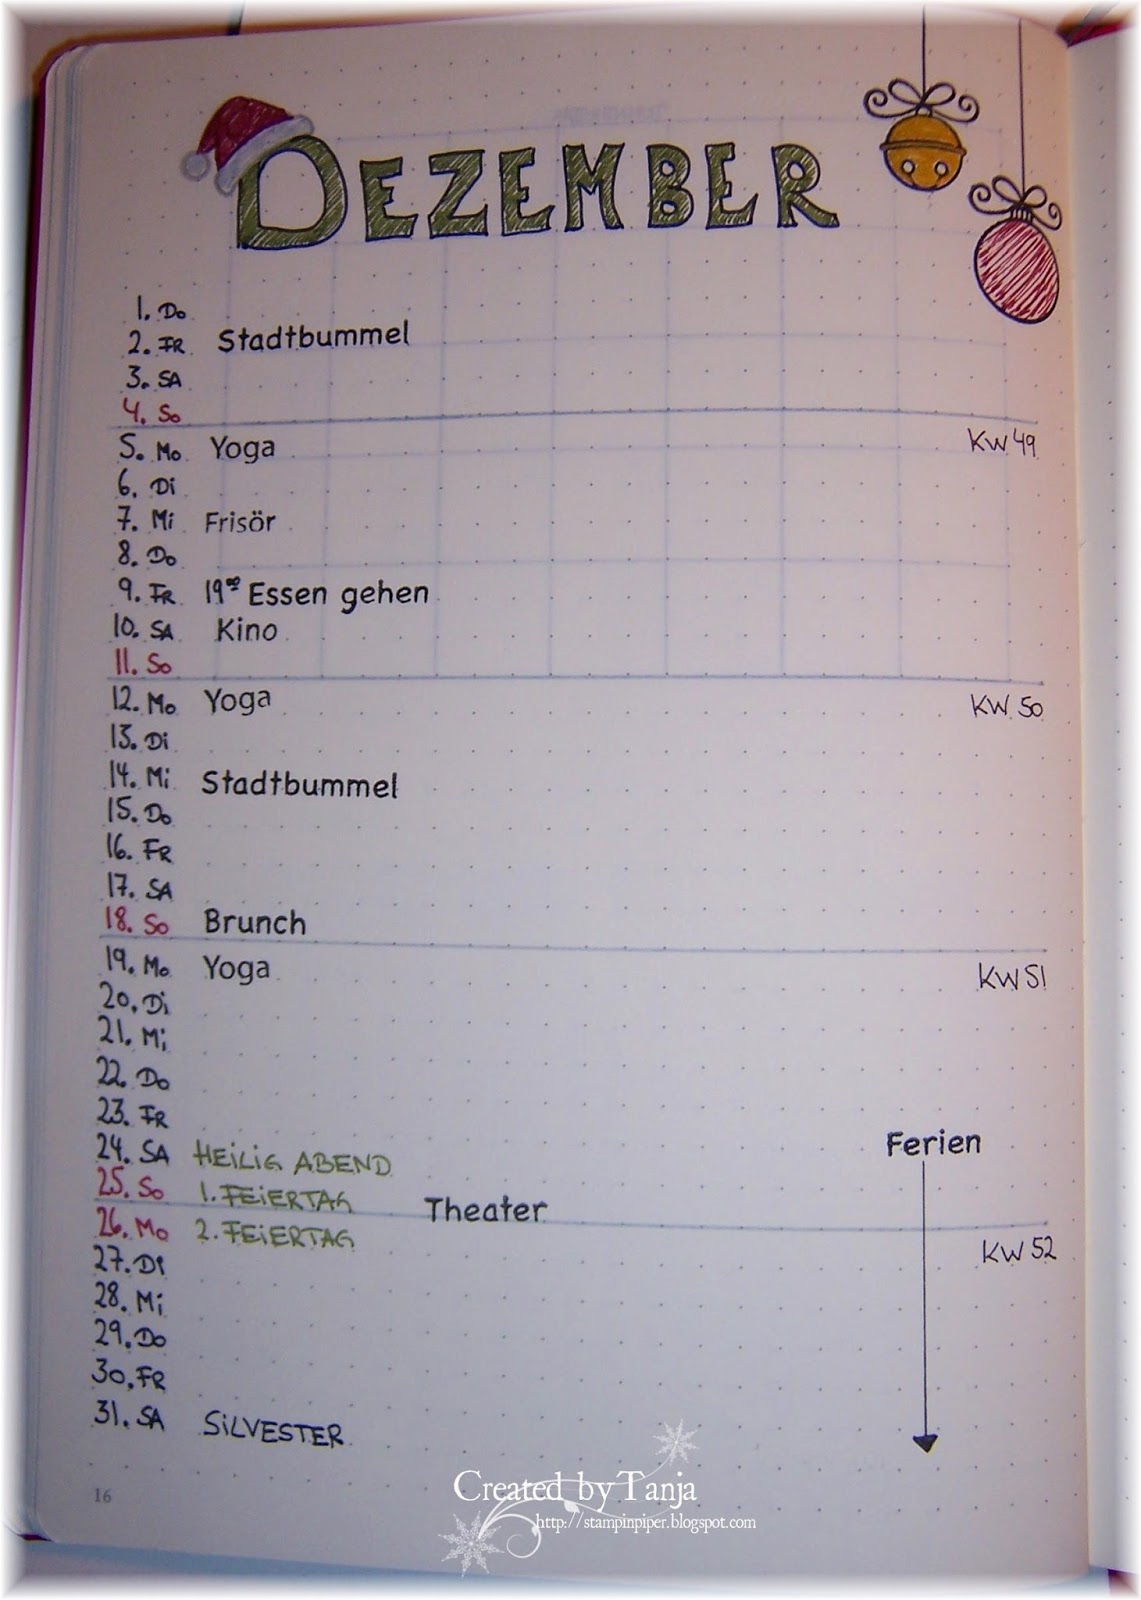 DEZEMBER
1. Do
2. FR Stadtbummel
3. SA
4. So
5. Mo Yoga KW 49
6. Di
7. Mi Frisör
8. Do
9. FR 19⁰⁰ Essen gehen
10. SA Kino
11. So
12. Mo Yoga KW 50
13. Di
14. Mi Stadtbummel
15. Do
16. FR
17. SA
18. So Brunch
19. Mo Yoga KW 51
20. Di
21. Mi
22. Do
23. FR
24. SA HEILIG ABEND Ferien
25. So 1. FEIERTAG Theater
26. Mo 2. FEIERTAG KW 52
27. Di
28. Mi
29. Do
30. FR
31. SA SILVESTER
16
Created by Tanja
http://stampinpiper.blogspot.com